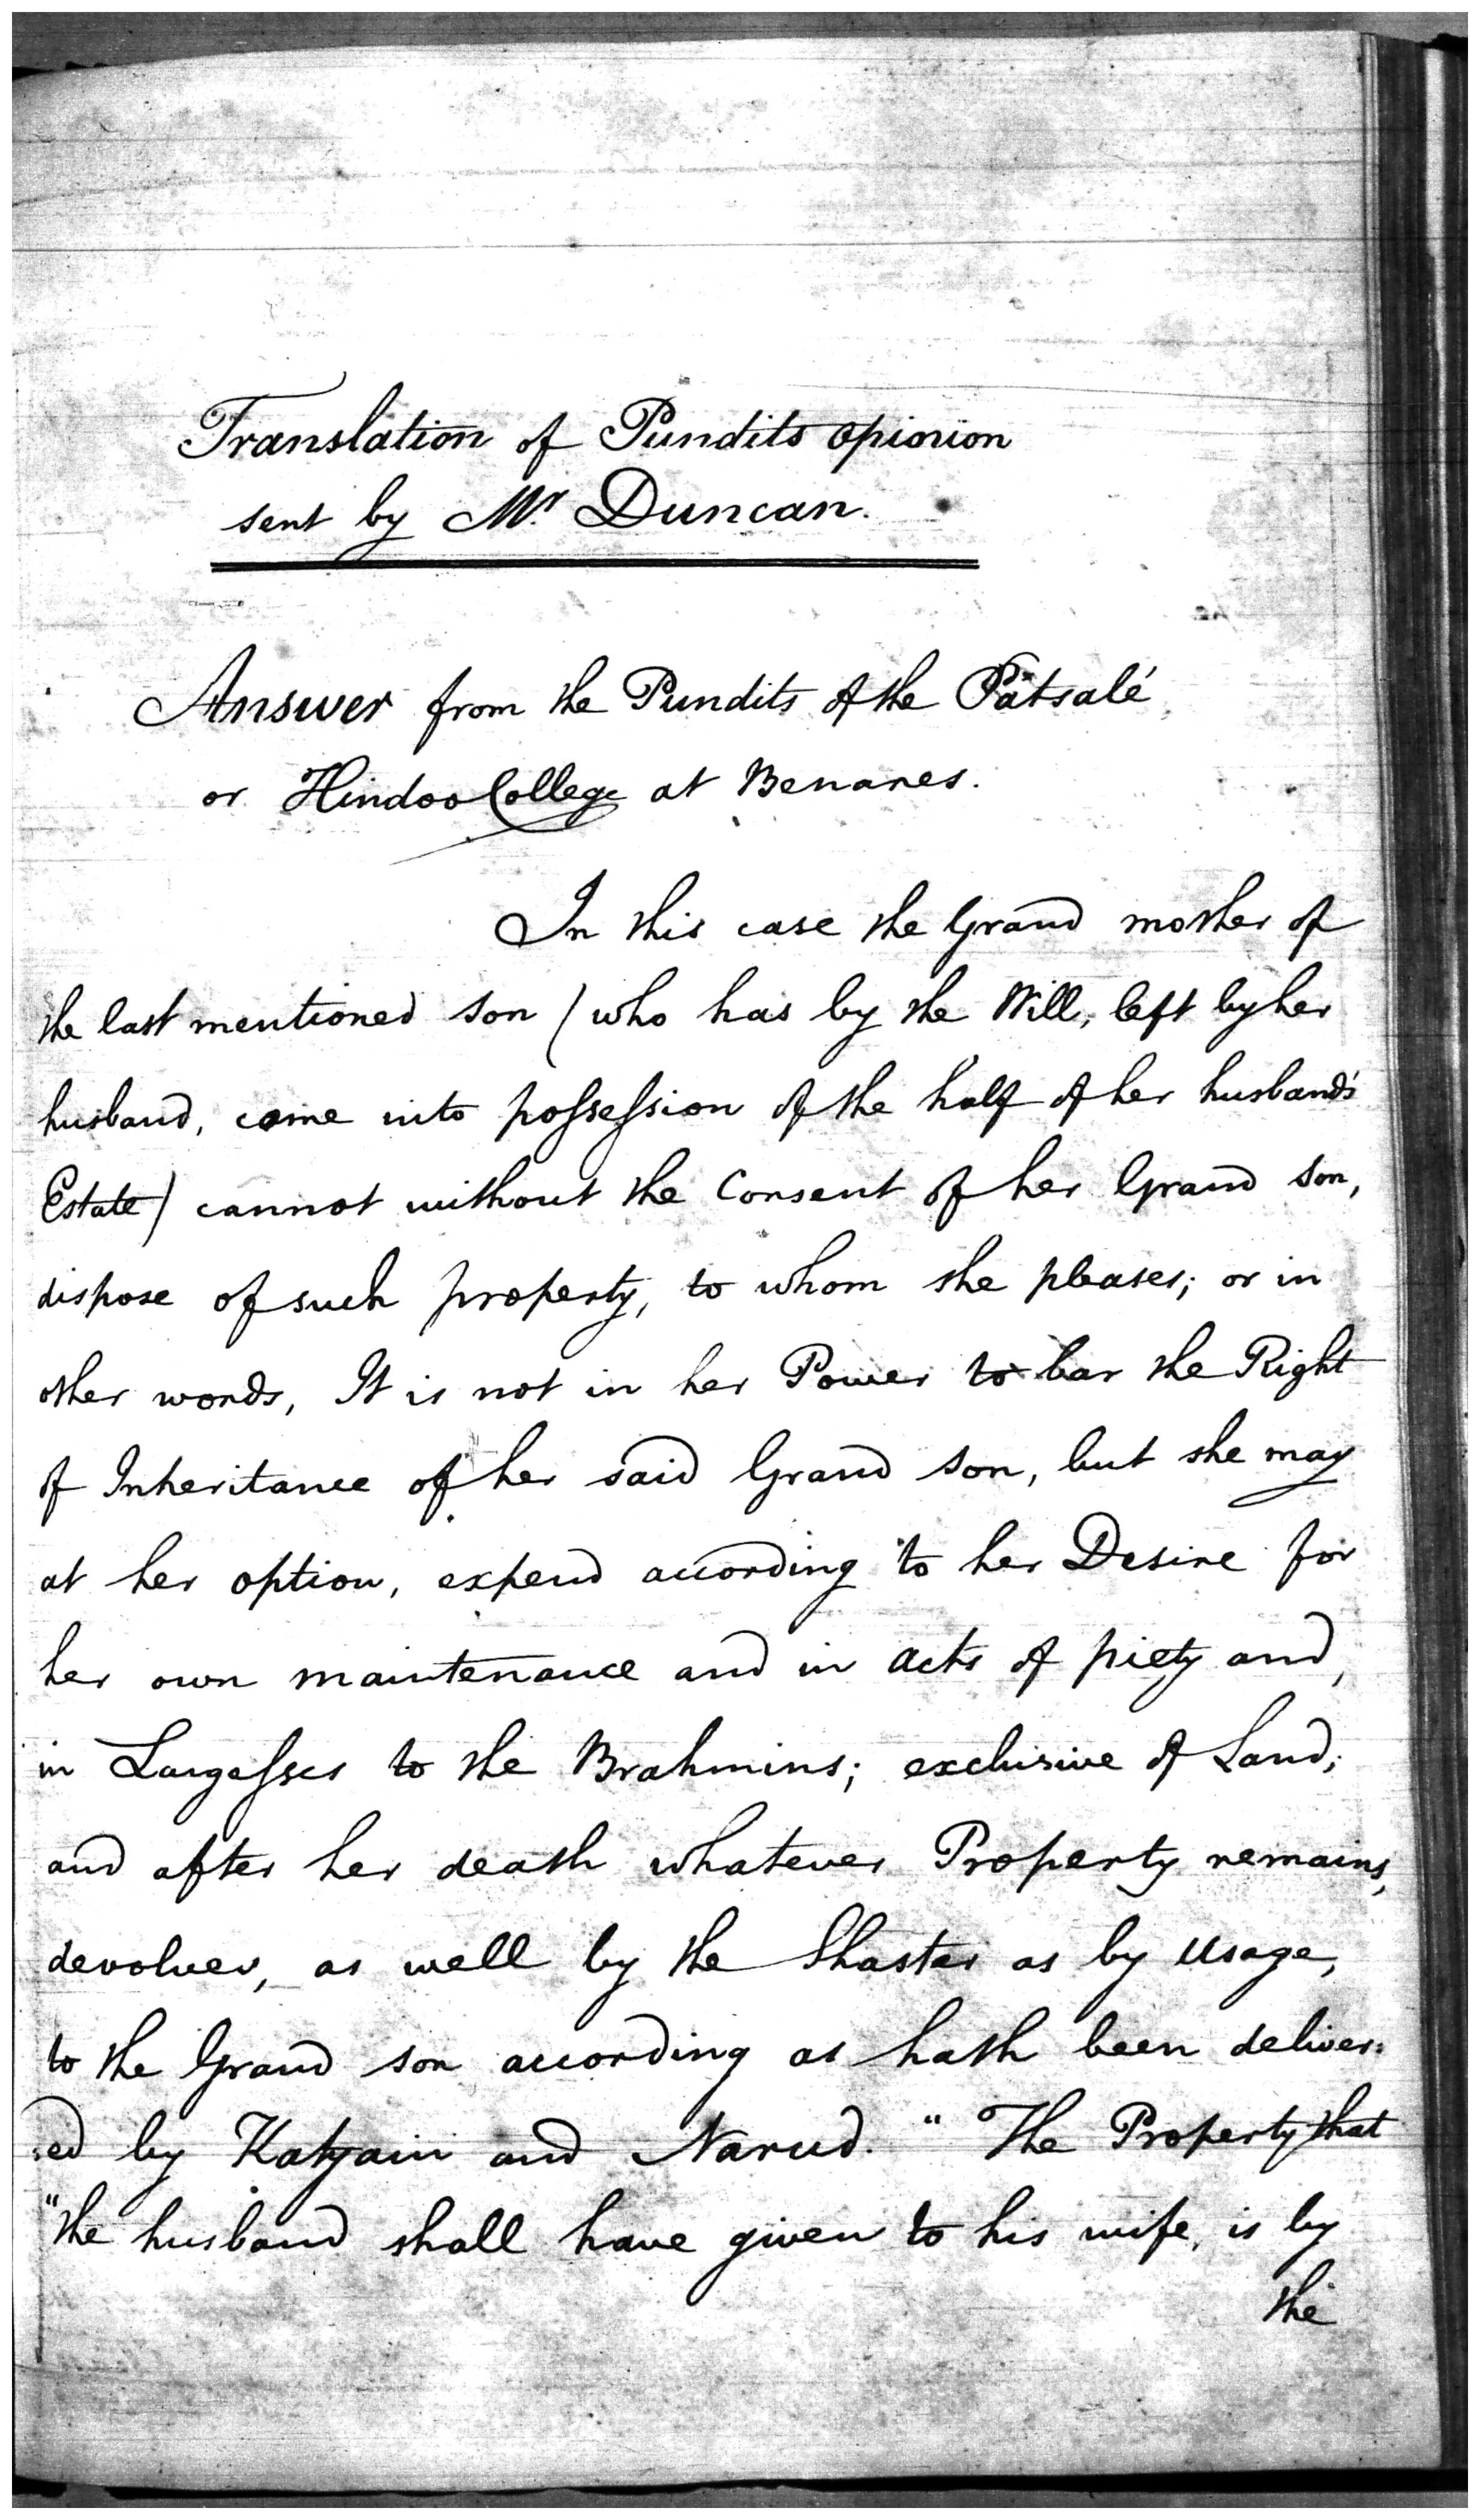 Translation of Pundits opinion
sent by Mr. Duncan.
Answer from the Pundits of the Pātsalé
or Hindoo College at Benares.
In this case the Grand mother of
the last mentioned son (who has by the Will, left by her
husband, come into possession of the half of her husband's
Estate) cannot without the Consent of her Grand son,
dispose of such property, to whom she pleases; or in
other words, It is not in her Power to bar the Right
of Inheritance of her said Grand son, but she may
at her option, expend according to her Desire for
her own maintenance and in acts of piety and,
in Largesses to the Brahmins; exclusive of Land;
and after her death whatever Property remains,
devolves, as well by the Shaster as by usage,
to the Grand son according as hath been deliver:
:ed by Katyain and Narud. "The Property that
"the husband shall have given to his wife, is by
the